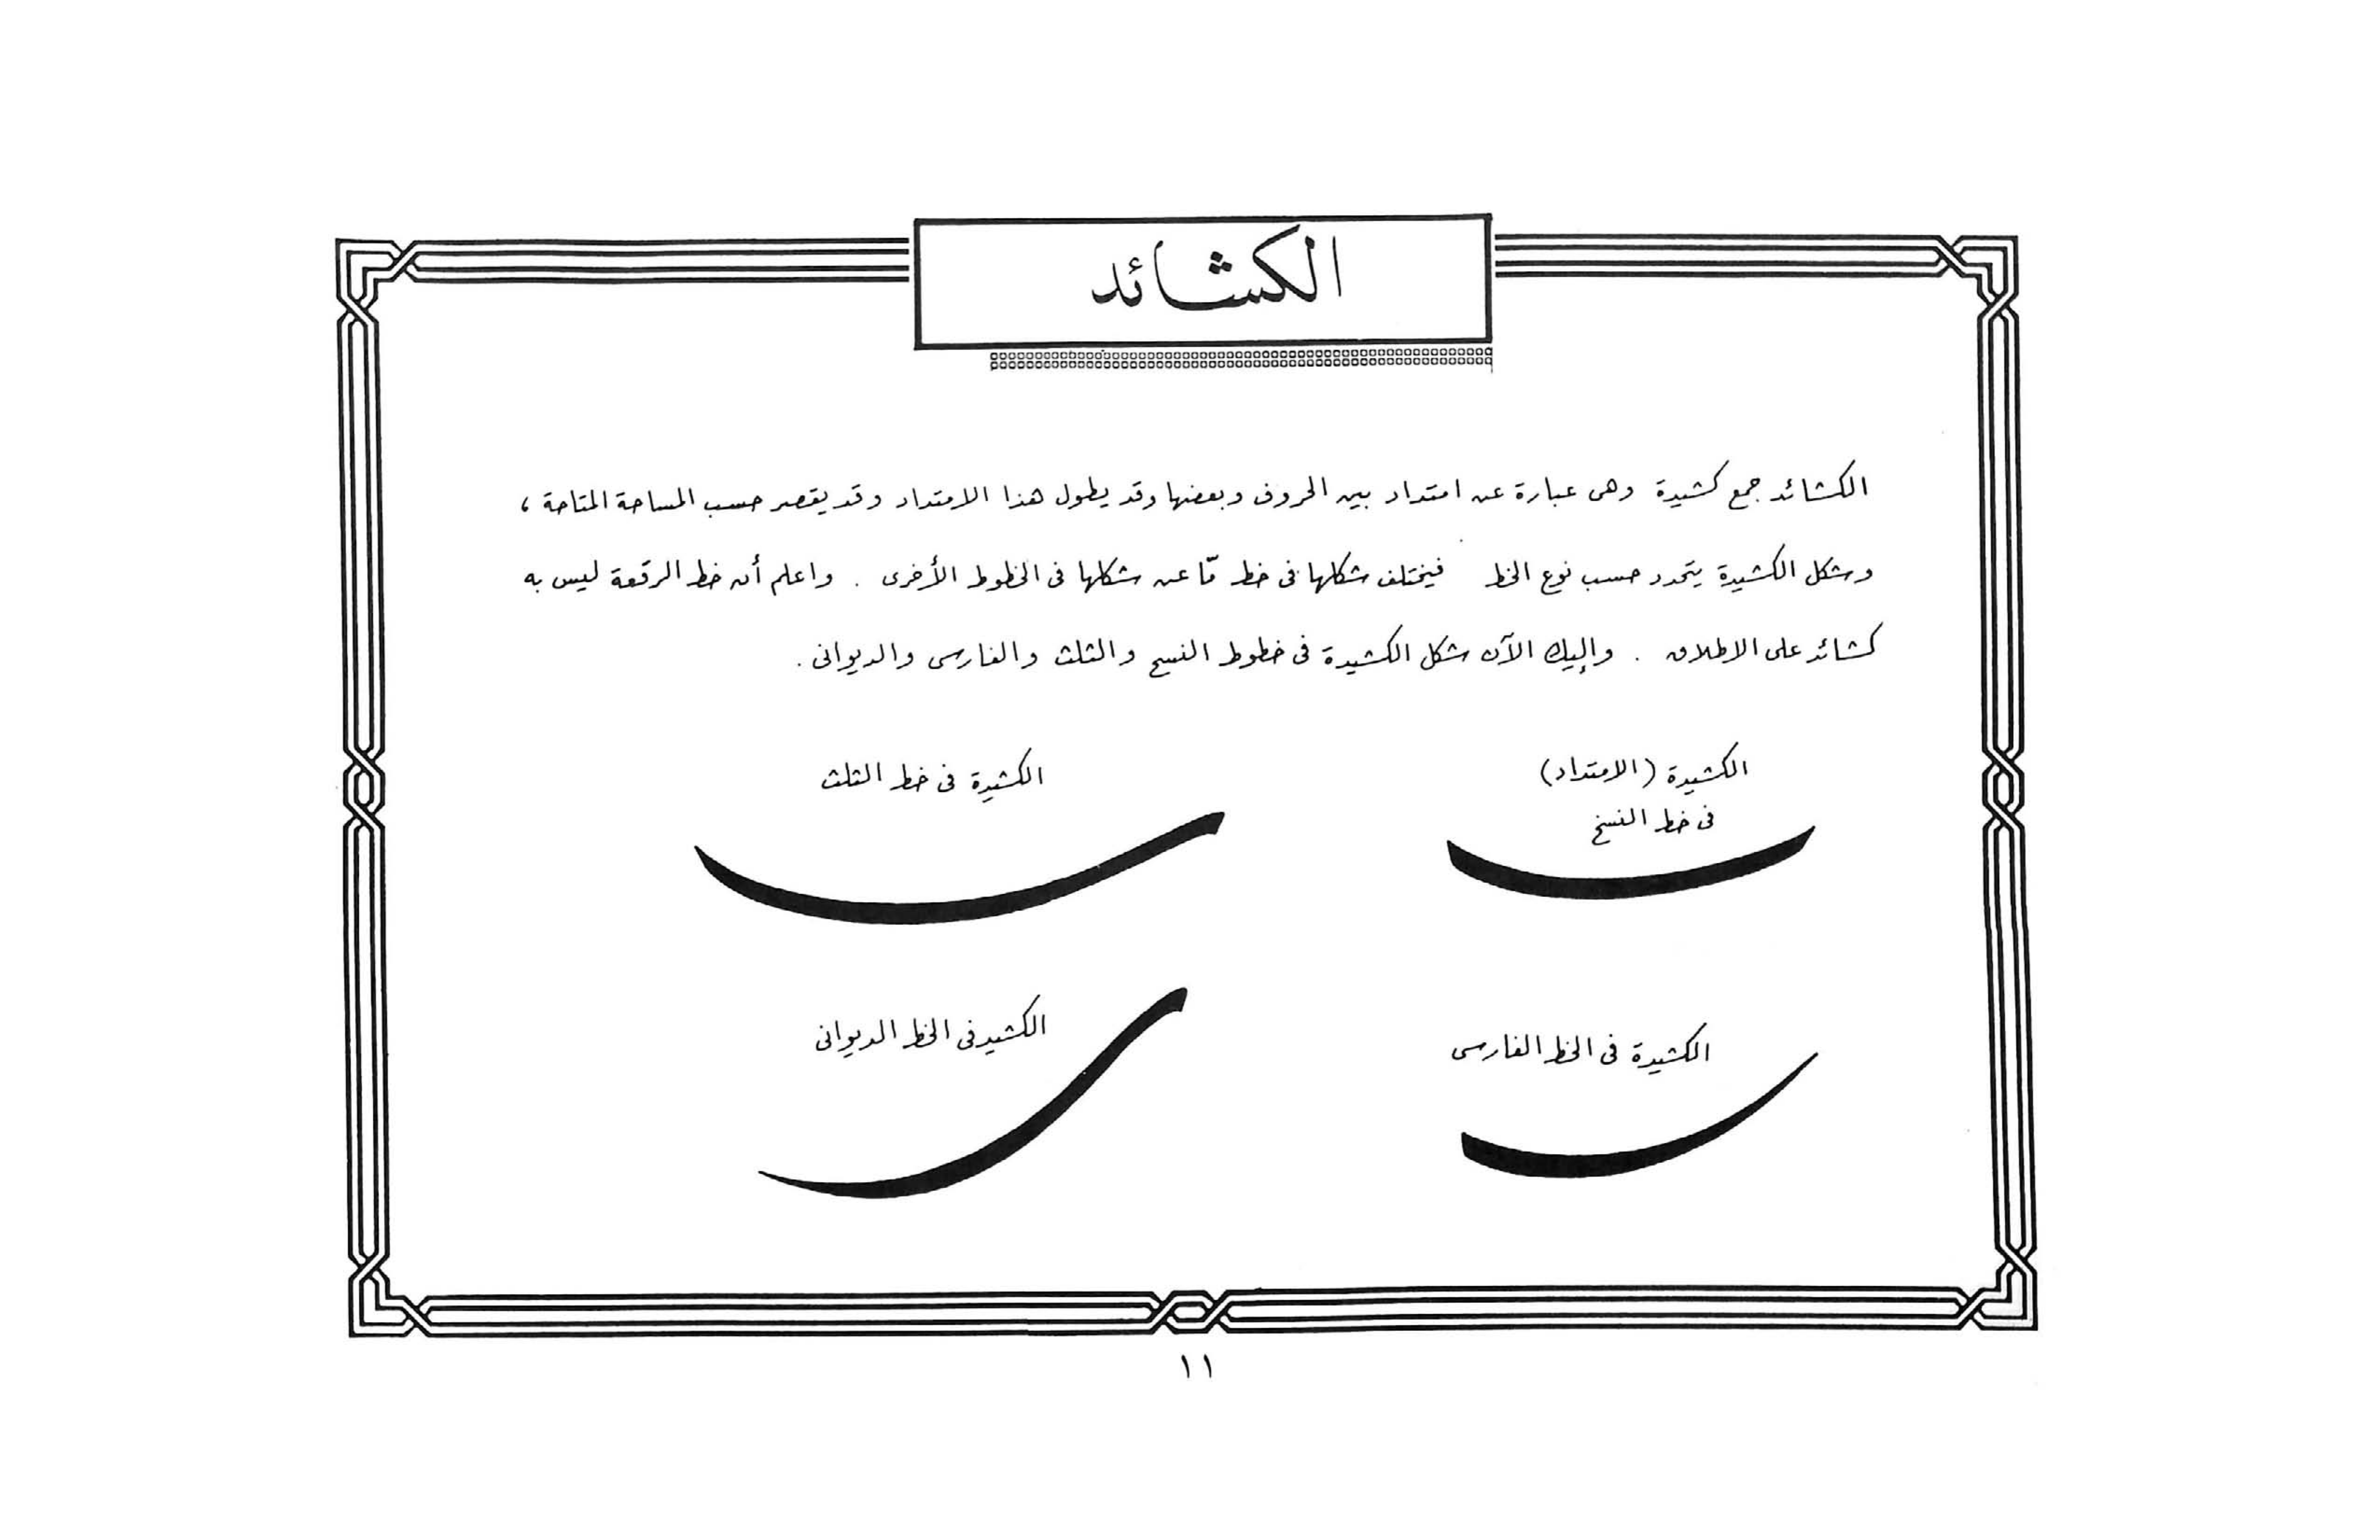 الكشائد
الكشائد جمع كشيدة وهى عبارة عن امتداد بين الحروف وبعضها وقد يطول هذا الامتداد وقد يقصر حسب المساحة المتاحة ،
وشكل الكشيدة يتحدد حسب نوع الخط فيختلف شكلها فى خط مّا عن شكلها فى الخطوط الأخرى . واعلم أن خط الرقعة ليس به
كشائد على الاطلاق . وإليك الآن شكل الكشيدة فى خطوط النسخ والثلث والفارسى والديوانى .
الكشيدة (الامتداد)
فى خط النسخ
الكشيدة فى خط الثلث
الكشيدة فى الخط الفارسى
الكشيد فى الخط الديوانى
١١